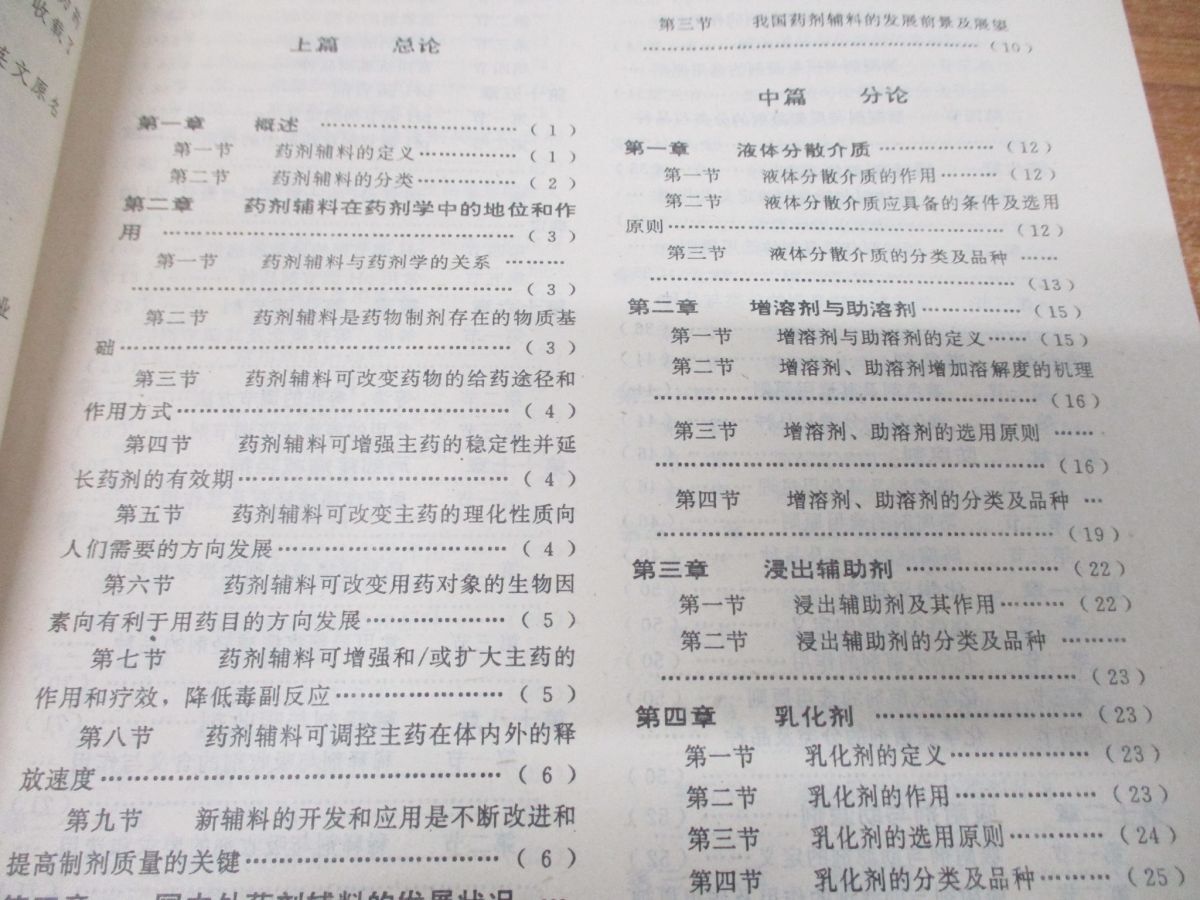 收载了
英文原名
上篇 总论
第一章 概述 ……………………（1）
第一节 药剂辅料的定义……………（1）
第二节 药剂辅料的分类……………（2）
第二章 药剂辅料在药剂学中的地位和作
用 ……………………………………（3）
第一节 药剂辅料与药剂学的关系 ………
……………………………………（3）
第二节 药剂辅料是药物制剂存在的物质基
础……………………………………（3）
第三节 药剂辅料可改变药物的给药途径和
作用方式………………………………（4）
第四节 药剂辅料可增强主药的稳定性并延
长药剂的有效期………………………（4）
第五节 药剂辅料可改变主药的理化性质向
人们需要的方向发展…………………（4）
第六节 药剂辅料可改变用药对象的生物因
素向有利于用药目的方向发展…………（5）
第七节 药剂辅料可增强和/或扩大主药的
作用和疗效，降低毒副反应……………（5）
第八节 药剂辅料可调控主药在体内外的释
放速度…………………………………（6）
第九节 新辅料的开发和应用是不断改进和
提高制剂质量的关键…………………（6）
第三章 国内外药剂辅料的发展状况 …
第三节 我国药剂辅料的发展前景及展望
……………………………………（10）
中篇 分论
第一章 液体分散介质………………（12）
第一节 液体分散介质的作用………（12）
第二节 液体分散介质应具备的条件及选用
原则…………………………………（12）
第三节 液体分散介质的分类及品种 ……
……………………………………（13）
第二章 增溶剂与助溶剂……………（15）
第一节 增溶剂与助溶剂的定义……（15）
第二节 增溶剂、助溶剂增加溶解度的机理
……………………………………（16）
第三节 增溶剂、助溶剂的选用原则 ……
……………………………………（16）
第四节 增溶剂、助溶剂的分类及品种 …
……………………………………（19）
第三章 浸出辅助剂 ………………（22）
第一节 浸出辅助剂及其作用………（22）
第二节 浸出辅助剂的分类及品种 ………
……………………………………（23）
第四章 乳化剂 ……………………（23）
第一节 乳化剂的定义………………（23）
第二节 乳化剂的作用………………（23）
第三节 乳化剂的选用原则…………（24）
第四节 乳化剂的分类及品种………（25）